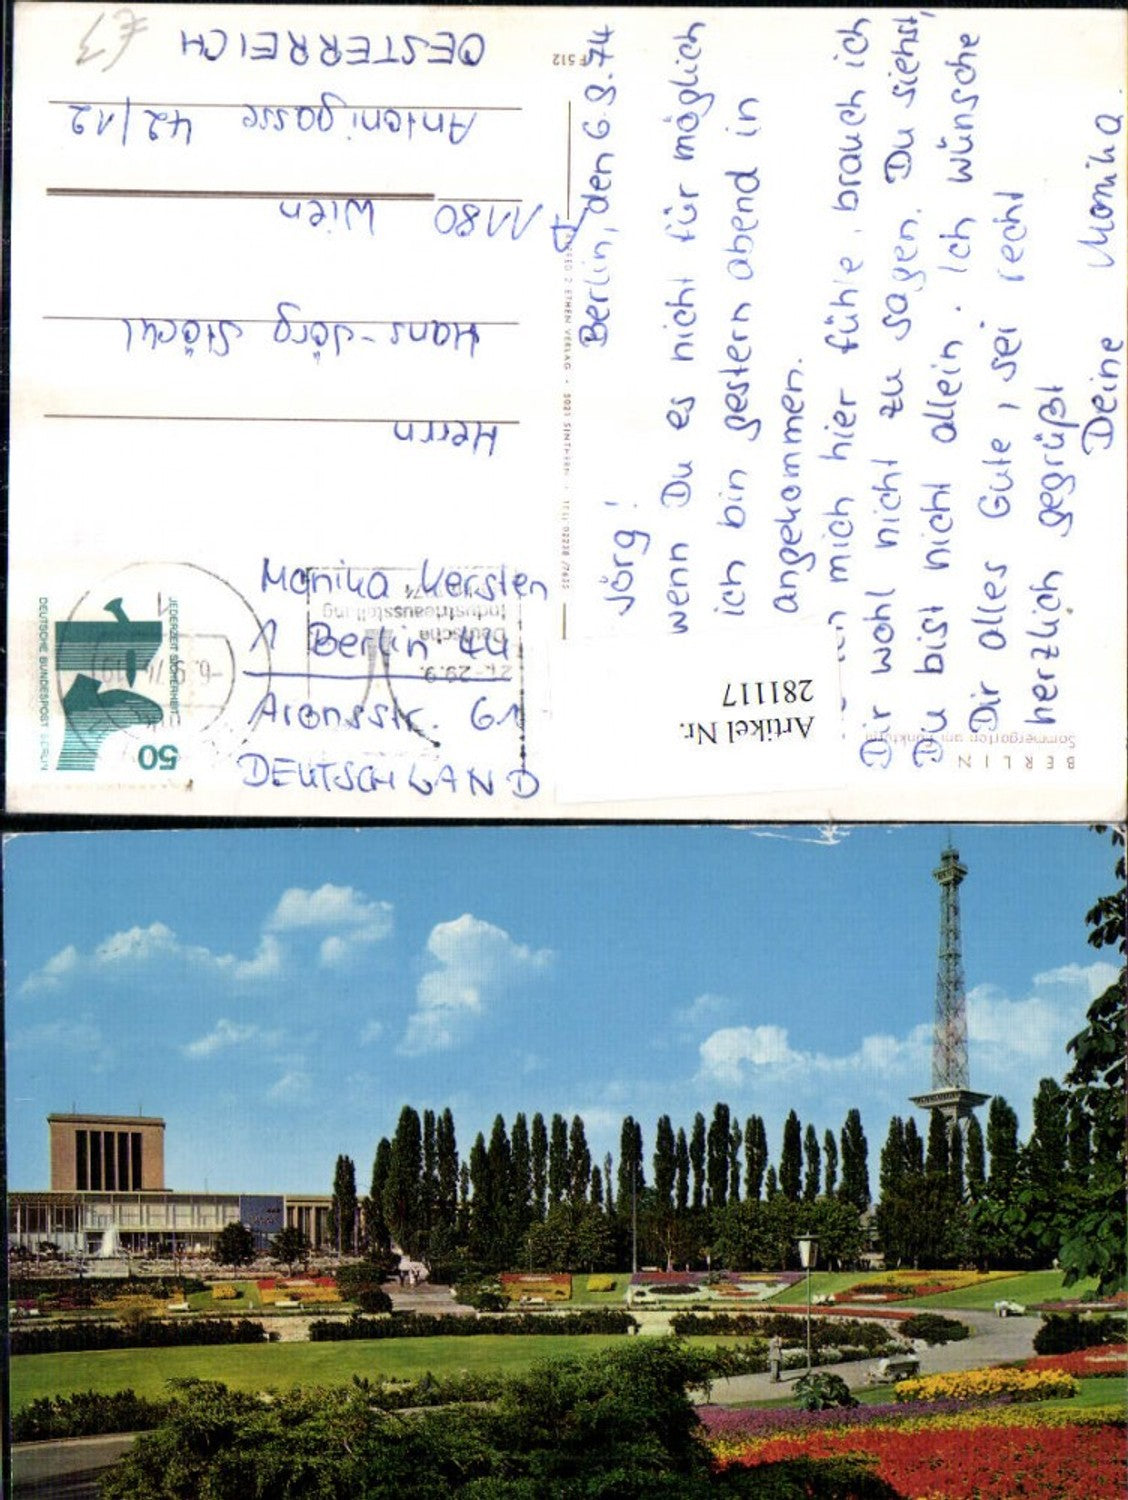 Berlin, den 6.9.74
Jörg!
wenn Du es nicht für möglich
ich bin gestern abend in
angekommen.
mich hier fühle, brauch ich
Dir wohl nicht zu sagen. Du siehst,
Du bist nicht allein. Ich wünsche
Dir alles Gute, sei recht
herzlich gegrüßt
Deine Monika.
Monika Kersten
1 Berlin 44
Aronsstr. 61
DEUTSCHLAND
Herrn
Hans-Jörg Stöckl
1180 Wien
Antonigasse 42/12
OESTERREICH
€3
F 512
BERLIN
Sommergarten am Funkturm
Artikel Nr.
281117
50
DEUTSCHE BUNDESPOST BERLIN
JEDERZEIT SICHERHEIT
-6.9.74-19
21.-29.9.
Deutsche
Industrieausstellung